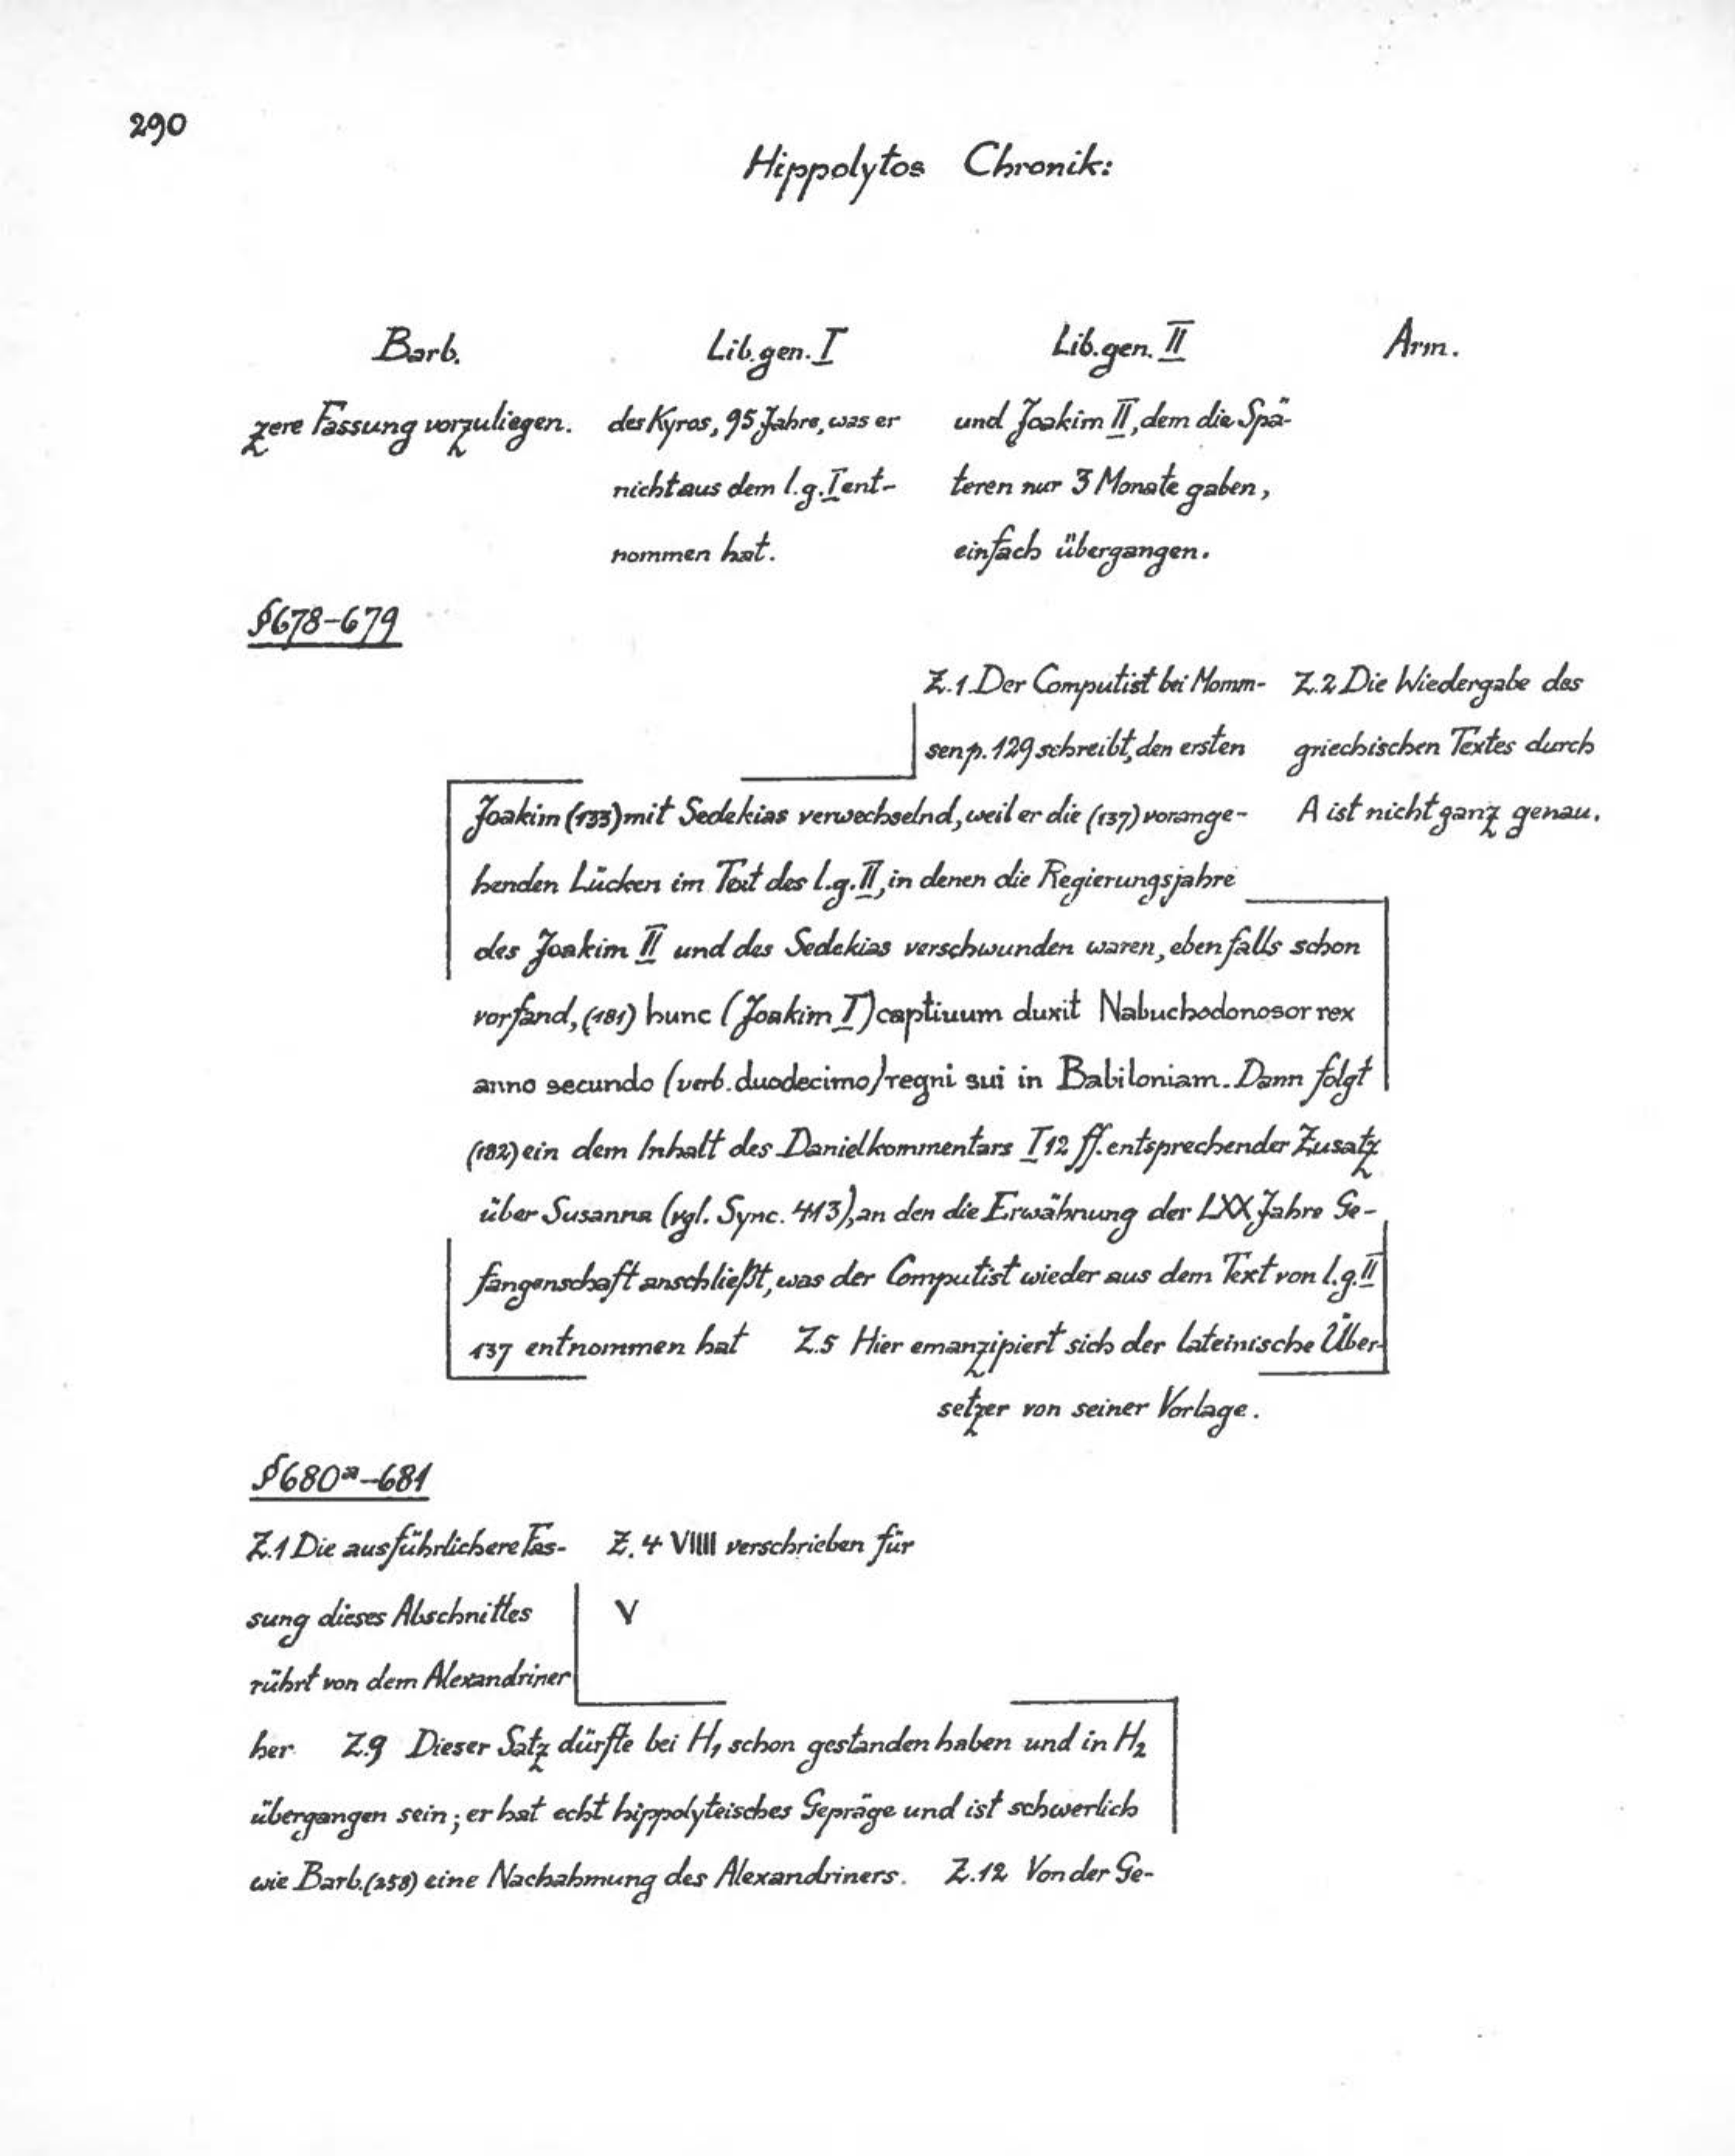 290
Hippolytos Chronik:
Barb. Lib.gen. I Lib.gen. II Arm.
zere Fassung vorzuliegen. des Kyros, 95 Jahre, was er und Joakim II, dem die Spä-
nicht aus dem l.g. I ent- teren nur 3 Monate gaben,
nommen hat. einfach übergangen.
§678-679
Z.1 Der Computist bei Momm- Z.2 Die Wiedergabe des
sen p. 129 schreibt, den ersten griechischen Textes durch
Joakim (133) mit Sedekias verwechselnd, weil er die (137) vorange- A ist nicht ganz genau.
henden Lücken im Text des l.g. II, in denen die Regierungsjahre
des Joakim II und des Sedekias verschwunden waren, ebenfalls schon
vorfand, (181) hunc (Joakim I) captiuum duxit Nabuchodonosor rex
anno secundo (verb. duodecimo) regni sui in Babiloniam. Dann folgt
(182) ein dem Inhalt des Danielkommentars I 12 ff. entsprechender Zusatz
über Susanna (vgl. Sync. 413), an den die Erwähnung der LXX Jahre Ge-
fangenschaft anschließt, was der Computist wieder aus dem Text von l.g. II
137 entnommen hat Z.5 Hier emanzipiert sich der lateinische Über-
setzer von seiner Vorlage.
§680a-681
Z.1 Die ausführlichere Fas- Z.4 VIIII verschrieben für
sung dieses Abschnittes V
rührt von dem Alexandriner
her. Z.9 Dieser Satz dürfte bei H1 schon gestanden haben und in H2
übergangen sein; er hat echt hippolyteisches Gepräge und ist schwerlich
wie Barb. (258) eine Nachahmung des Alexandriners. Z.12 Von der Ge-